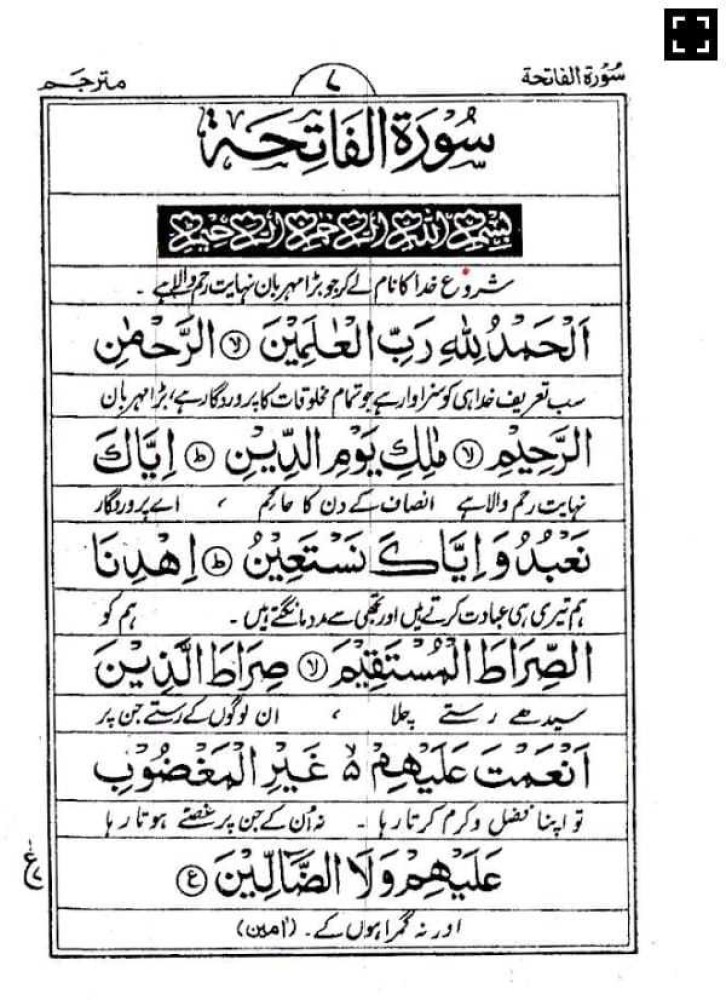 سُوْرَۃُ الفاتحۃ ۷ مترجم
سُوْرَۃُ الْفَاتِحَۃِ
بِسْمِ اللّٰهِ الرَّحْمٰنِ الرَّحِیْمِ
شروع خدا کا نام لے کر جو بڑا مہربان نہایت رحم والا ہے ۔
اَلْحَمْدُ لِلّٰهِ رَبِّ الْعٰلَمِیْنَ ﴿لا﴾ الرَّحْمٰنِ
سب تعریف خدا ہی کو سزاوار ہے جو تمام مخلوقات کا پروردگار ہے، بڑا مہربان
الرَّحِیْمِ ﴿لا﴾ مٰلِكِ یَوْمِ الدِّیْنِ ﴿ط﴾ اِیَّاكَ
نہایت رحم والا ہے انصاف کے دن کا حاکم ، اے پروردگار
نَعْبُدُ وَ اِیَّاكَ نَسْتَعِیْنُ ﴿ط﴾ اِهْدِنَا
ہم تیری ہی عبادت کرتے ہیں اور تجھی سے مدد مانگتے ہیں ۔ ہم کو
الصِّرَاطَ الْمُسْتَقِیْمَ ﴿لا﴾ صِرَاطَ الَّذِیْنَ
سیدھے رستے چلا ، ان لوگوں کے رستے جن پر
اَنْعَمْتَ عَلَیْهِمْ ۵ۙ غَیْرِ الْمَغْضُوْبِ
تو اپنا فضل و کرم کرتا رہا ۔ نہ اُن کے جن پر غصے ہوتا رہا
عَلَیْهِمْ وَلَا الضَّآلِّیْنَ ﴿ع﴾
اور نہ گمراہوں کے ۔ (اٰمین)